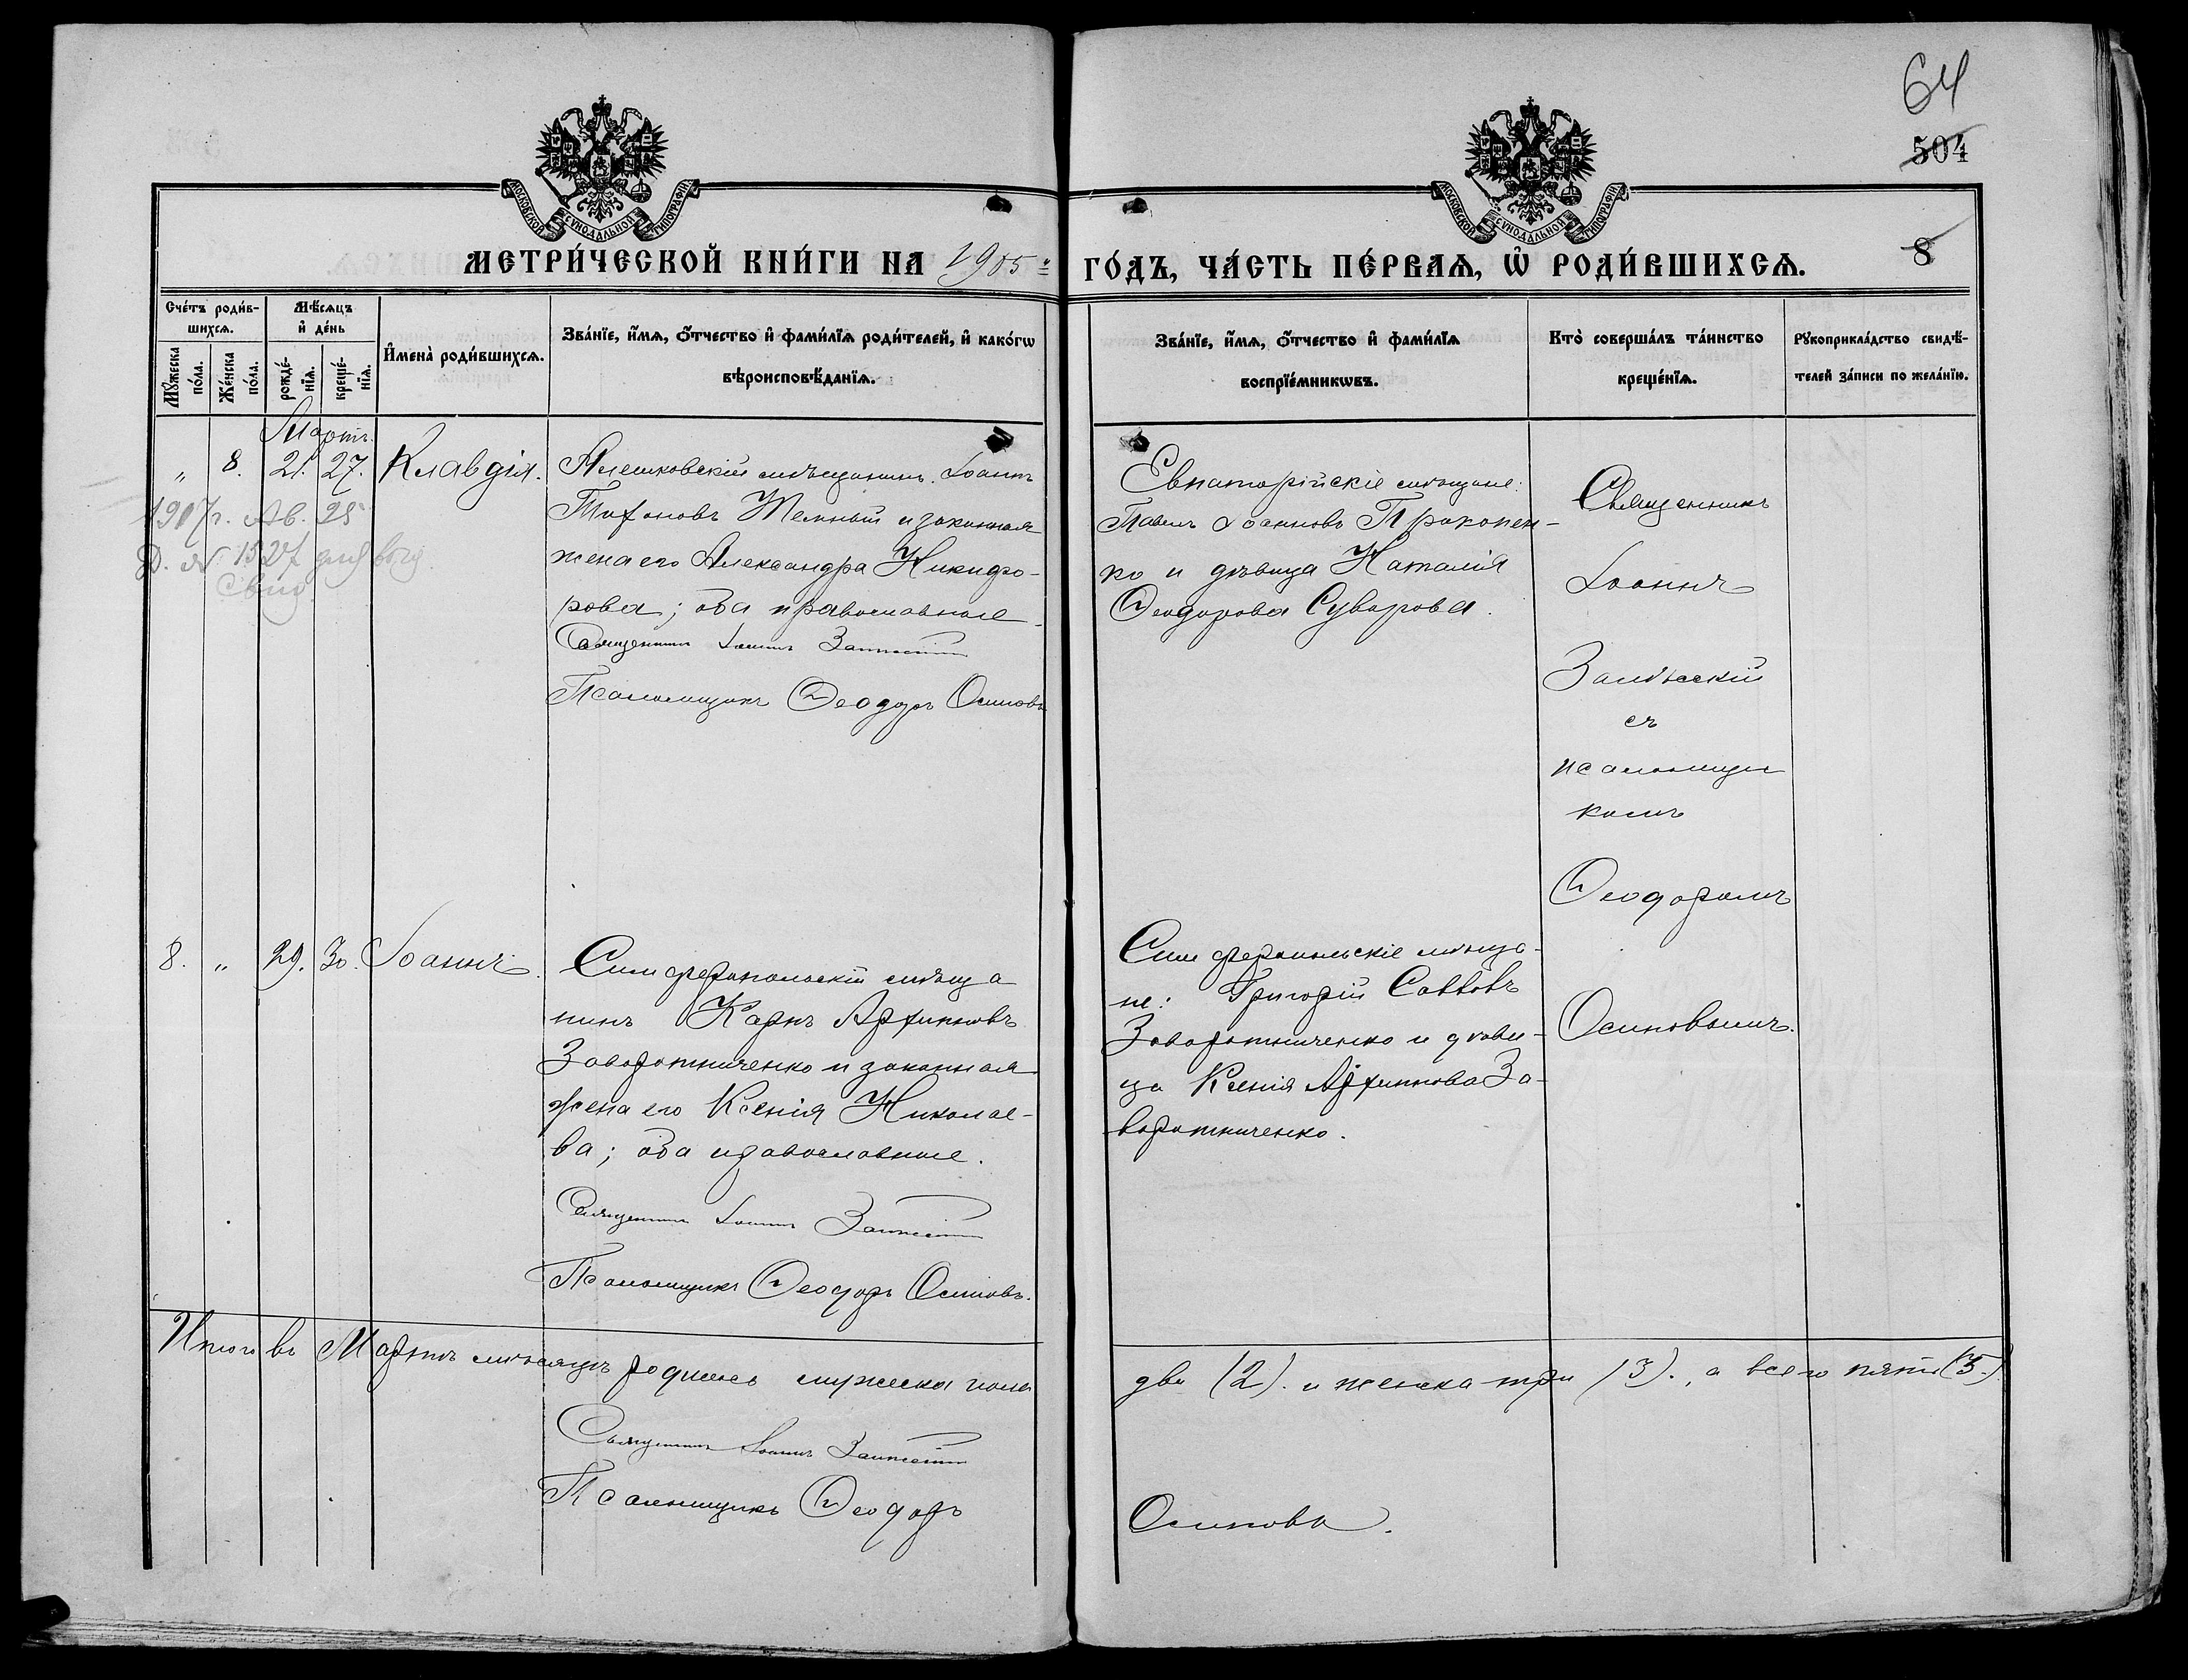 64
504
МОСКОВСКОЙ СѴНОДАЛЬНОЙ ТИПОГРАФІИ
МОСКОВСКОЙ СѴНОДАЛЬНОЙ ТИПОГРАФІИ
МЕТРИ́ЧЕСКОЙ КНИ́ГИ НА 1905й
ГО́ДЪ, ЧА́СТЬ ПЕ́РВАѦ, Ѡ҆ РОДИ́ВШИХСѦ.
8
Сче́тъ роди́в-
шихсѧ.
Мꙋ́жеска
по́ла.
Же́нска
по́ла.
Мѣ́сѧцъ
и҆ де́нь
рожде́-
нїѧ.
креще́-
нїѧ.
И҆мена̀ роди́вшихсѧ.
Зва́нїе, и҆́мѧ, ѻ҆́тчество и҆ фами́лїѧ роди́телей, и҆ како́гѡ
вѣроисповѣ́данїѧ.
Зва́нїе, и҆́мѧ, ѻ҆́тчество и҆ фами́лїѧ
воспрїе́мникѡвъ.
Кто̀ соверша́лъ та́инство
креще́нїѧ.
Рꙋкоприкла́дство свидѣ́-
телей за́писи по жела́нїю.
Мартъ.
„ 8. 21. 27. Клавдія.
1917г. Ав. 25
Д. № 1527
Свид
Алешковскій мѣщанинъ Іоаннъ
Тифоновъ Темный и законная
жена его Александра Никифо-
рова; оба православные
Священникъ Іоаннъ Залѣсскій
Псаломщикъ Ѳеодоръ Осиповъ
Евпаторійскіе мѣщане:
Павелъ Іоанновъ Прокопен-
ко и дѣвица Наталія
Ѳеодорова Суворова.
Священникъ
Іоаннъ
Залѣсскій
съ
псаломщи
комъ
Ѳеодоромъ
Осиповымъ.
8. „ 29. 30. Іоаннъ.
Симферопольскій мѣща
нинъ Карпъ Архиповъ
Заворотниченко и законная
жена его Ксенія Николае-
ва; оба православные.
Священникъ Іоаннъ Залѣсскій
Псаломщикъ Ѳеодоръ Осиповъ.
Симферопольскіе мѣща-
не: Григорій Савовъ
Заворотниченко и дѣви-
ца Ксенія Архиппова За-
воротниченко.
Итого въ Мартѣ мѣсяцѣ родилось мужеска пола
два (2). и женска три (3)., а всего пять (5.)
Священникъ Іоаннъ Залѣсскій
Псаломщикъ Ѳеодоръ
Осиповъ.